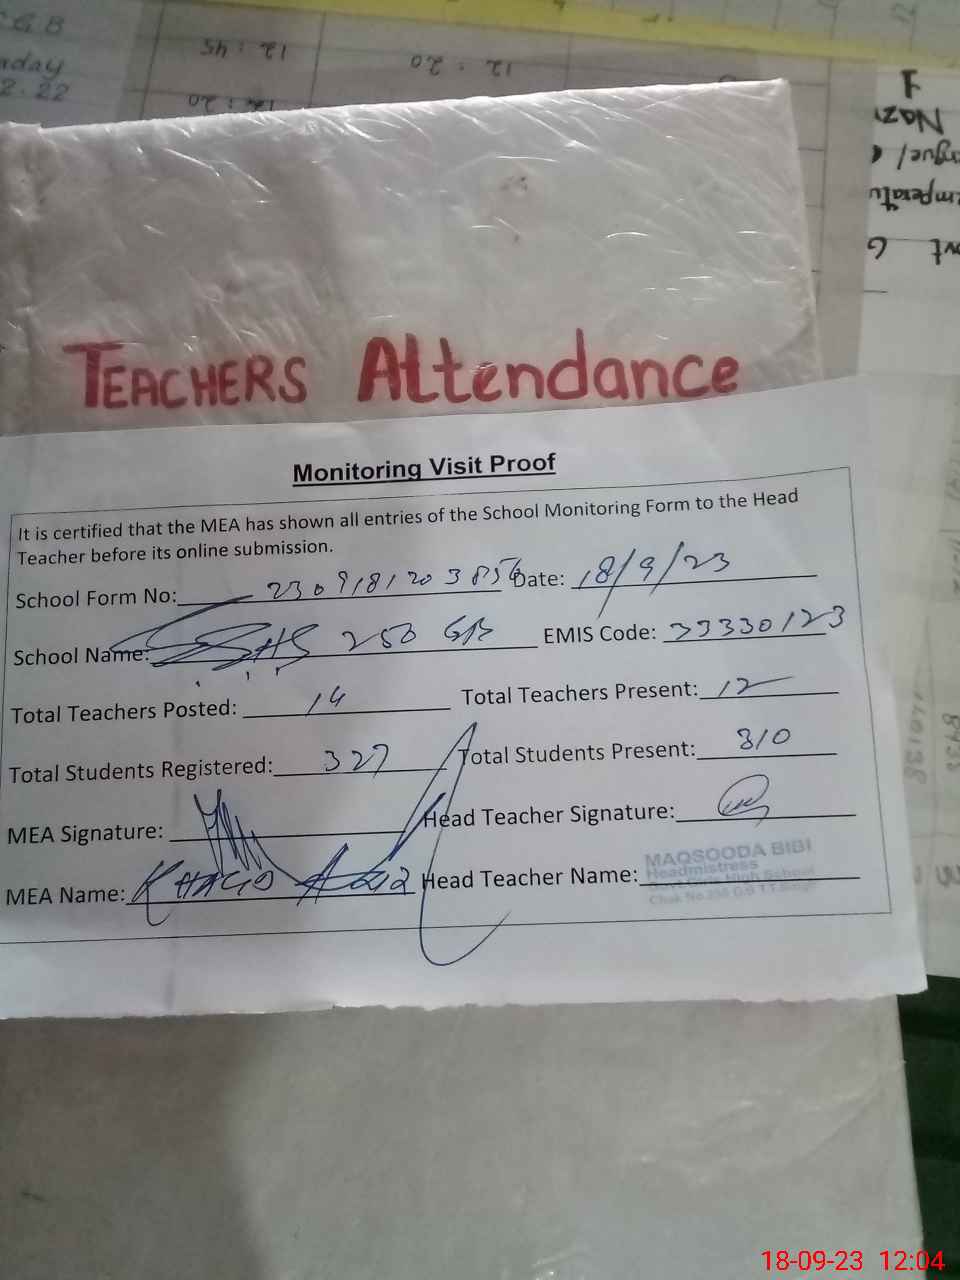 12:45
12:20
12:20
2.22
TEACHERS Attendance
Monitoring Visit Proof
It is certified that the MEA has shown all entries of the School Monitoring Form to the Head
Teacher before its online submission.
School Form No: Date: 18/9/23
School Name: 250 GB EMIS Code: 33330123
Total Teachers Posted: 14 Total Teachers Present: 12
Total Students Registered: 327 Total Students Present: 310
MEA Signature: Head Teacher Signature:
MEA Name: Head Teacher Name: MAQSOODA BIBI
Headmistress
Govt Girls High School
Chak No.250 G.B T.T.Singh
18-09-23 12:04